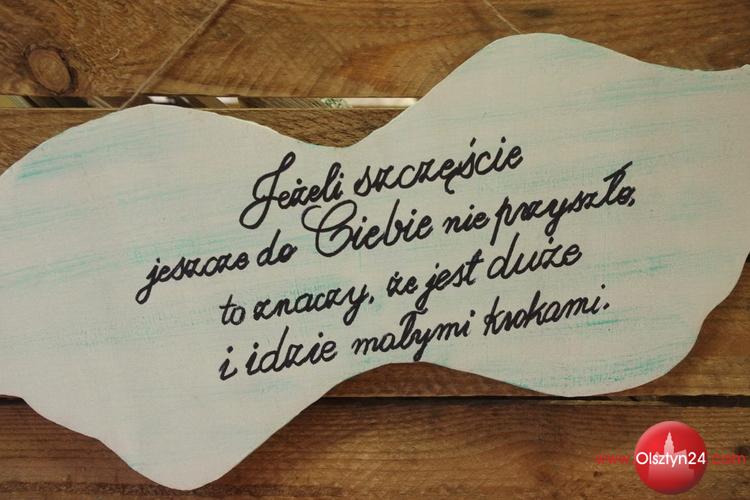 Jeżeli szczęście
jeszcze do Ciebie nie przyszło,
to znaczy, że jest duże
i idzie małymi krokami.
www.Olsztyn24.com